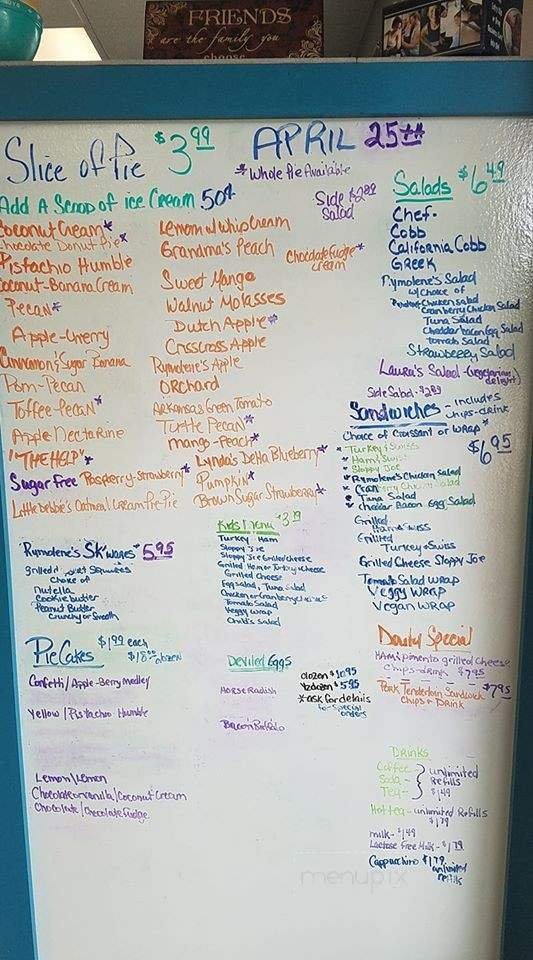 FRIENDS
are the family you
choose
Slice of Pie $3.99
APRIL 25th
*Whole Pie Available
Add A Scoop of ice Cream 50¢
Side $2.89
Salad
Coconut Cream*
Chocolate Donut Pie*
Pistachio Humble
Coconut-Banana Cream
Pecan*
Apple-Cherry
Cinnamon/Sugar Banana
Pom-Pecan
Toffee-Pecan*
Apple Nectarine
"THE HELP"*
Sugar Free Raspberry-Strawberry*
Little Debbie's Oatmeal Cream Pie-Pie
Lemon w/ Whip Cream
Grandma's Peach
Chocolate Fudge*
Cream
Sweet Mango
Walnut Molasses
Dutch Apple*
CrissCross Apple
Rymolene's Apple
ORchard
Arkansas Green Tomato
Turtle Pecan*
Mango-Peach*
Lynda's Delta Blueberry*
Pumpkin*
Brown Sugar Strawberry*
Salads $6.49
Chef.
Cobb
California Cobb
Greek
Rymolene's Salad
w/ Choice of
Chicken Salad
Cranberry Chicken Salad
Tuna Salad
Cheddar bacon Egg Salad
tomato Salad
Strawberry Salad
Laura's Salad-(vegetarian delight)
Side Salad-$2.89
Sandwiches - includes
chips-drink
Choice of Croissant or Wrap*
$6.95
* Turkey & Swiss
* Ham & Swiss
* Sloppy Joe
* Rymolene's Chicken Salad
* Cranberry Chicken Salad
* Tuna Salad
* Cheddar Bacon Egg Salad
Grilled
Ham & Swiss
Grilled
Turkey & Swiss
Grilled Cheese Sloppy Joe
Tomato Salad Wrap
Veggy Wrap
Vegan Wrap
Rymolene's SK'wores $5.95
grilled
Choice of
Nutella
Cookie butter
Peanut Butter
Crunchy or Smooth
Kids Menu $3.19
Turkey, Ham
Sloppy Joe
Sloppy Joe Grilled Cheese
Grilled Ham or Turkey & Cheese
Grilled Cheese
Egg Salad, Tuna Salad
Tomato Salad
Veggy Wrap
Child's Salad
Pie Cakes $1.99 each
$18.00 dozen
Confetti/Apple-Berry Medley
Yellow/Pistachio Humble
Lemon/Lemon
Chocolate or vanilla/Coconut Cream
Chocolate/Chocolate Fudge
Deviled Eggs
dozen $10.95
½ dozen $5.95
*ask for details
for special
orders
Horse Radish
Bacon Buffalo
Donuty Special
Ham & pimento grilled cheese
chips-drink $7.95
Pork Tenderloin Sandwich $7.95
Chips & Drink
DRINKS
Coffee -
Soda -
Tea -
unlimited
Refills
$1.49
Hot tea - unlimited Refills
$1.79
milk - $1.49
Lactose Free Milk - $1.79
Cappuccino $1.79
unlimited
refills
menupix